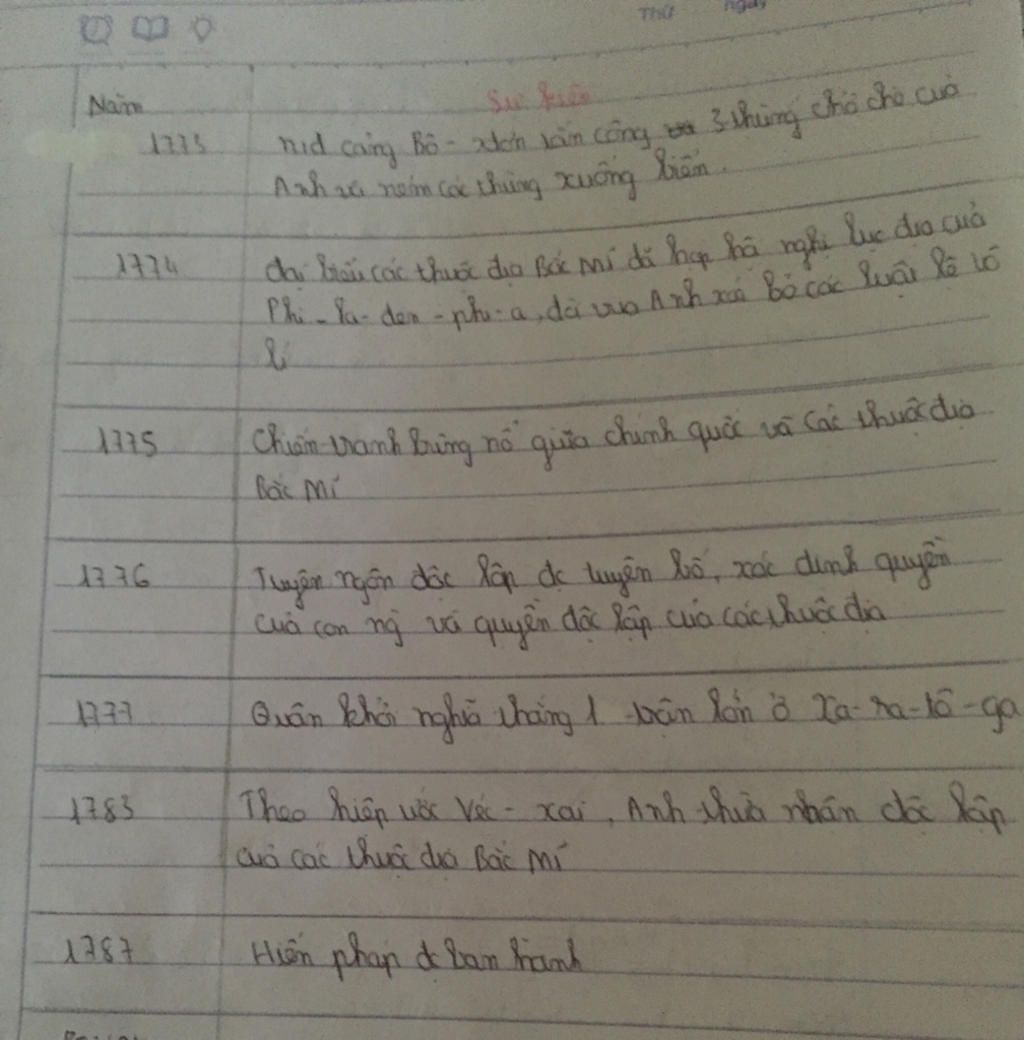 Thứ ngày
Năm Sự kiện
1773 nd cảng Bô-xtơn tấn công 3 thùng chở chè của
Anh và ném các thùng xuống biển.
1774 đại biểu các thuộc địa Bắc Mĩ đã họp hội nghị lục địa của
Phi-la-den-phi-a, đòi vua Anh xoá bỏ các luật lệ vô
lí
1775 Chiến tranh bùng nổ giữa chính quốc và các thuộc địa
Bắc Mĩ
1776 Tuyên ngôn độc lập đc tuyên bố, xác định quyền
của con ng và quyền độc lập của các thuộc địa
1777 Quân khởi nghĩa thắng 1 trận lớn ở Xa-ra-tô-ga
1783 Theo hiệp ước Véc-xai, Anh thừa nhận độc lập
của các thuộc địa Bắc Mĩ
1787 Hiến pháp đc ban hành